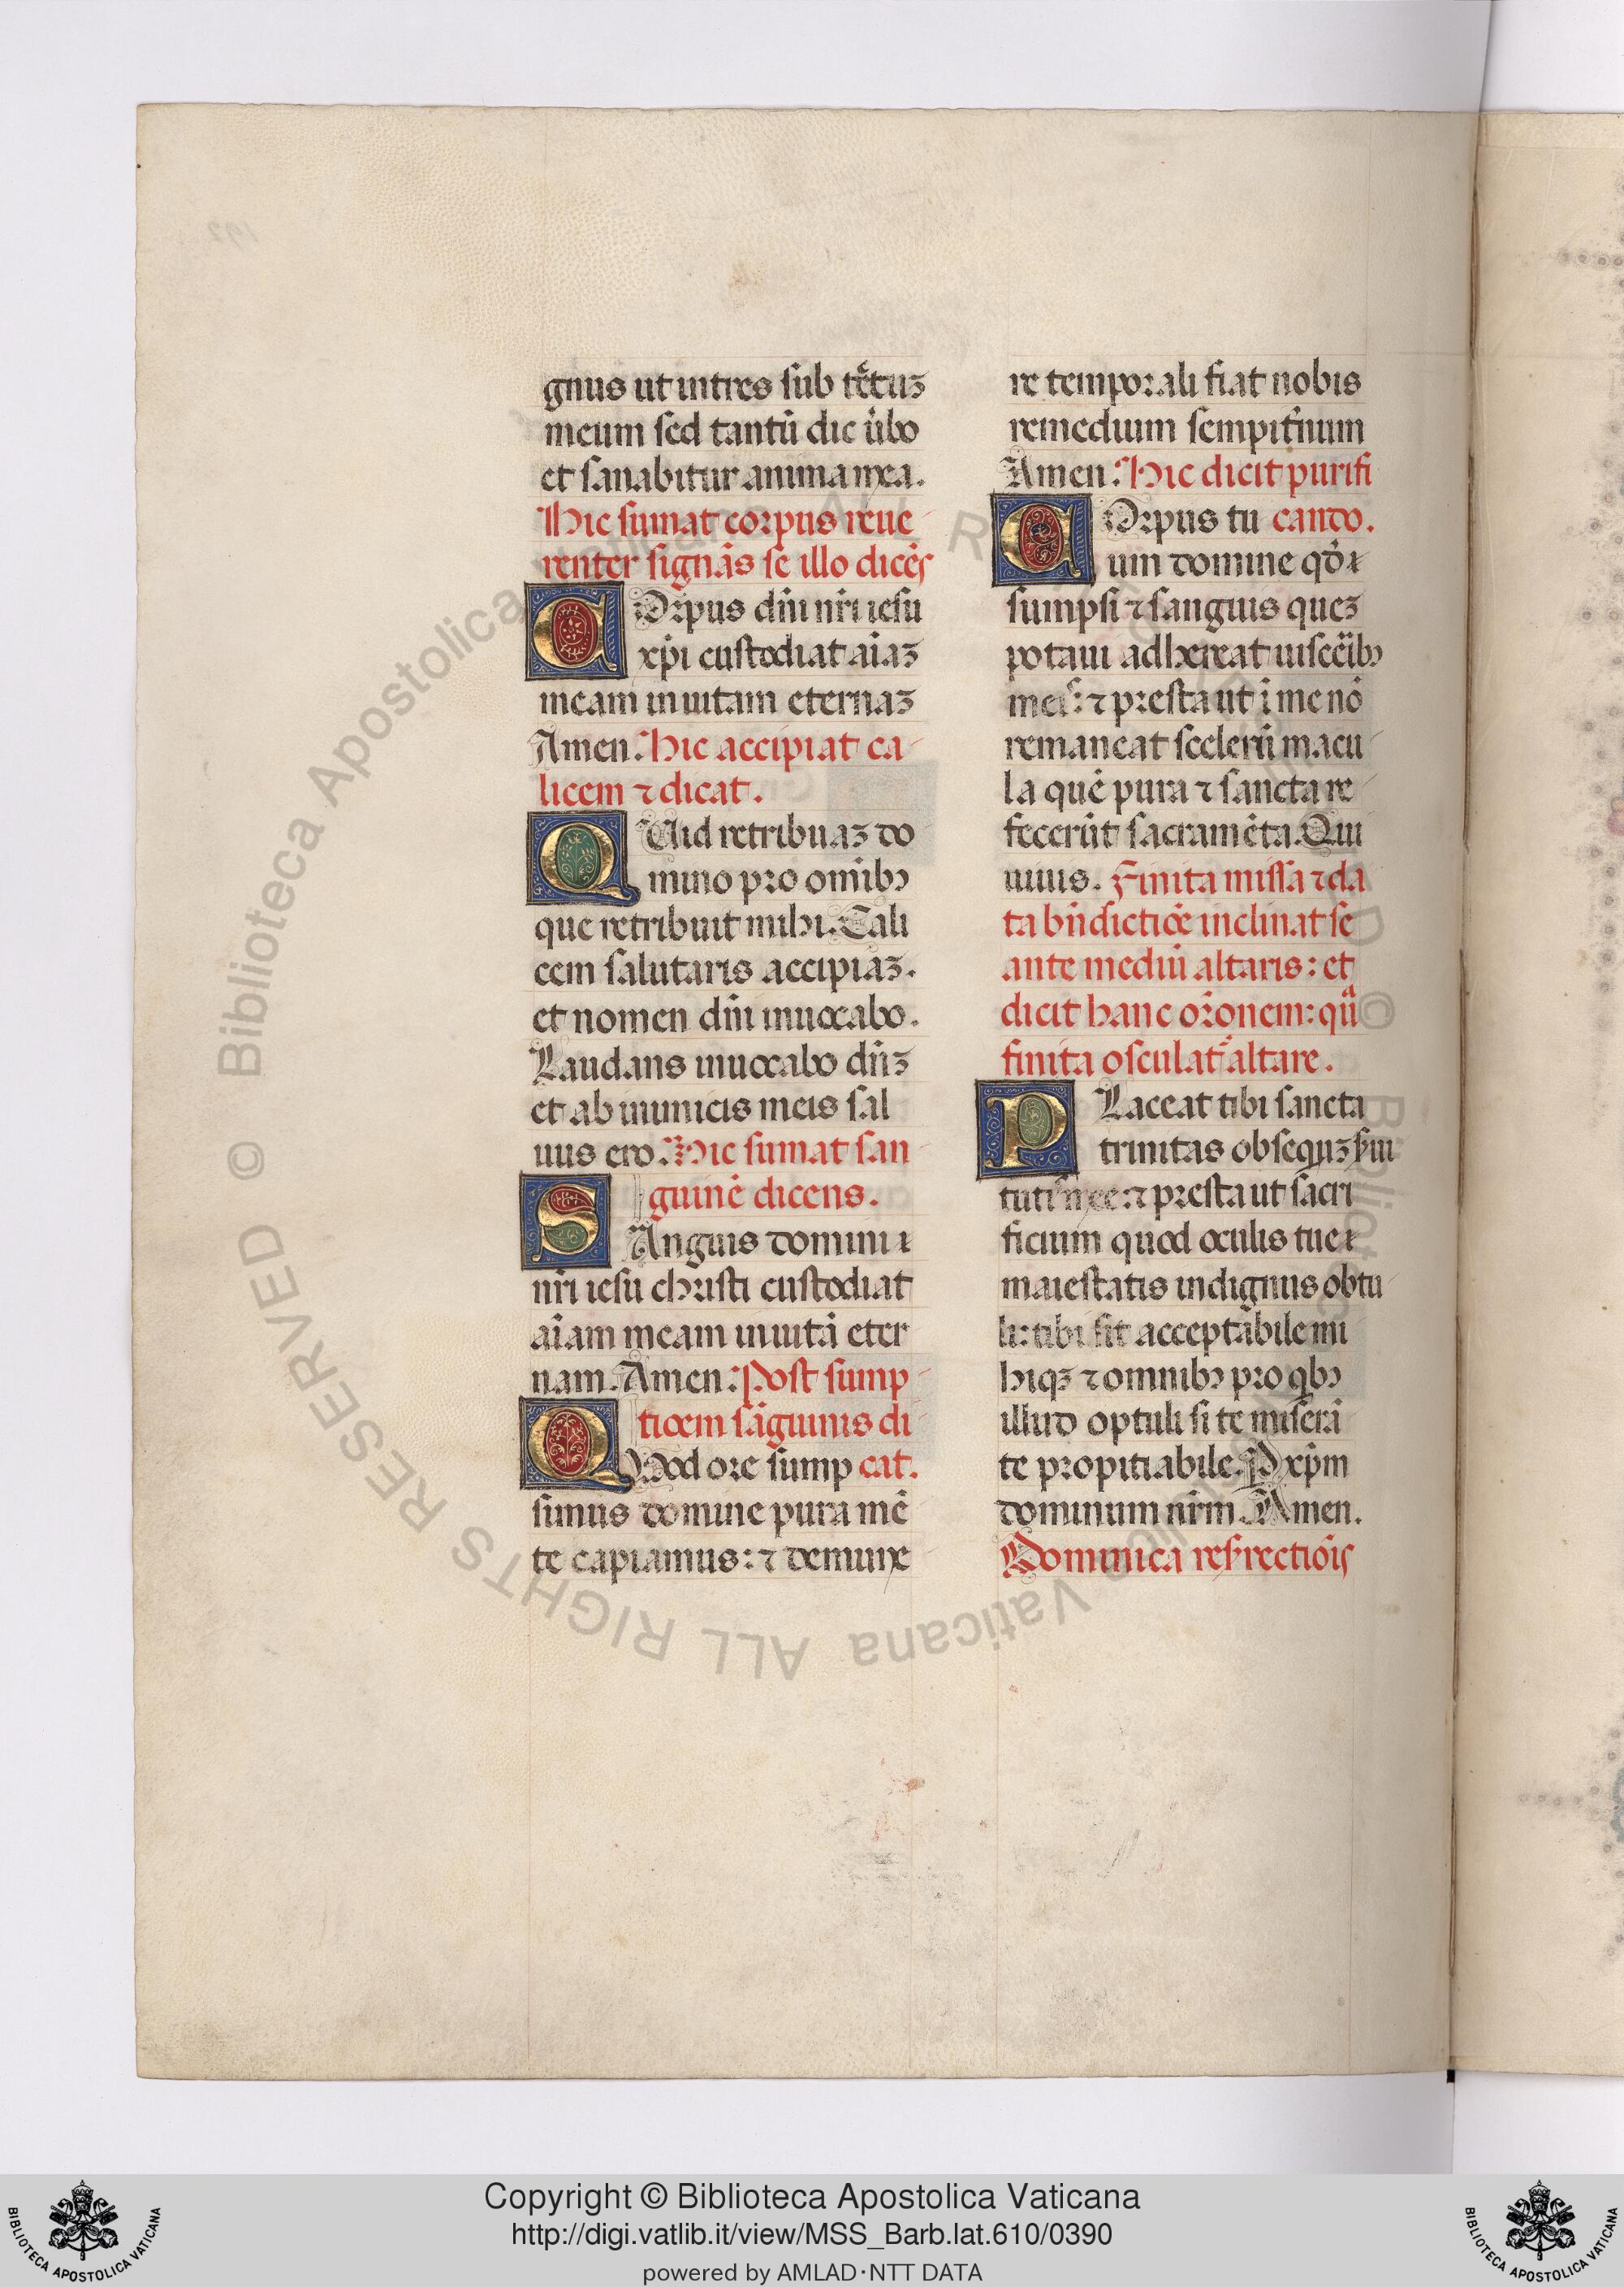 gnus ut intres sub tectuꝫ
meum sed tantū dic ūbo
et sanabitur anima mea.
Hic sumat corpus reue
renter signās se illo dicēs
Corpus dñi nr̄i iesu
xp̄i custodiat aīaꝫ
meam in uitam eternaꝫ
Amen. Hic accipiat ca
licem ⁊ dicat.
Quid retribuaꝫ do
mino pro omībꝰ
que retribuit mihi. Cali
cem salutaris accipiaꝫ.
et nomen dñi inuocabo.
Laudans inuocabo dñꝫ
et ab inimicis meis sal
uus ero. Hic sumat san
guinē dicens.
Sanguis domini
nr̄i iesu christi custodiat
aīam meam in uitā eter
nam. Amen. Post sump
tiōem sāguinis di
Quod ore sump cat.
simus domine pura mē
te capiamus: ⁊ de mune
re temporali fiat nobis
remedium sempit̄num
Amen. Hic dicit purifi
Corpus tu cando.
um domine qd̄
sumpsi ⁊ sanguis queꝫ
potaui adhereat uiscēibꝰ
meis: ⁊ presta ut ī me nō
remaneat scelerū macu
la quē pura ⁊ sancta re
fecerūt sacramēta. Qui
uiuis. Finita missa ⁊ da
ta bn̄dictiōe inclinat se
ante mediū altaris: et
dicit hanc orōnem: qua
finita osculat᷑ altare.
Placeat tibi sancta
trinitas obsequꝫ ẜui
tutis mee: ⁊ presta ut sacri
ficium quod oculis tue
maiestatis indignus obtu
li: tibi sit acceptabile mi
hiqꝫ ⁊ omnibꝰ pro qbꝰ
illud optuli sit te miserā
te propitiabile. P xp̄m
dominum nr̄m. Amen.
Dominica resr̄rectiōis
© Biblioteca Apostolica Vaticana ALL RIGHTS RESERVED
Copyright © Biblioteca Apostolica Vaticana
http://digi.vatlib.it/view/MSS_Barb.lat.610/0390
powered by AMLAD·NTT DATA
BIBLIOTECA APOSTOLICA VATICANA
BIBLIOTECA APOSTOLICA VATICANA